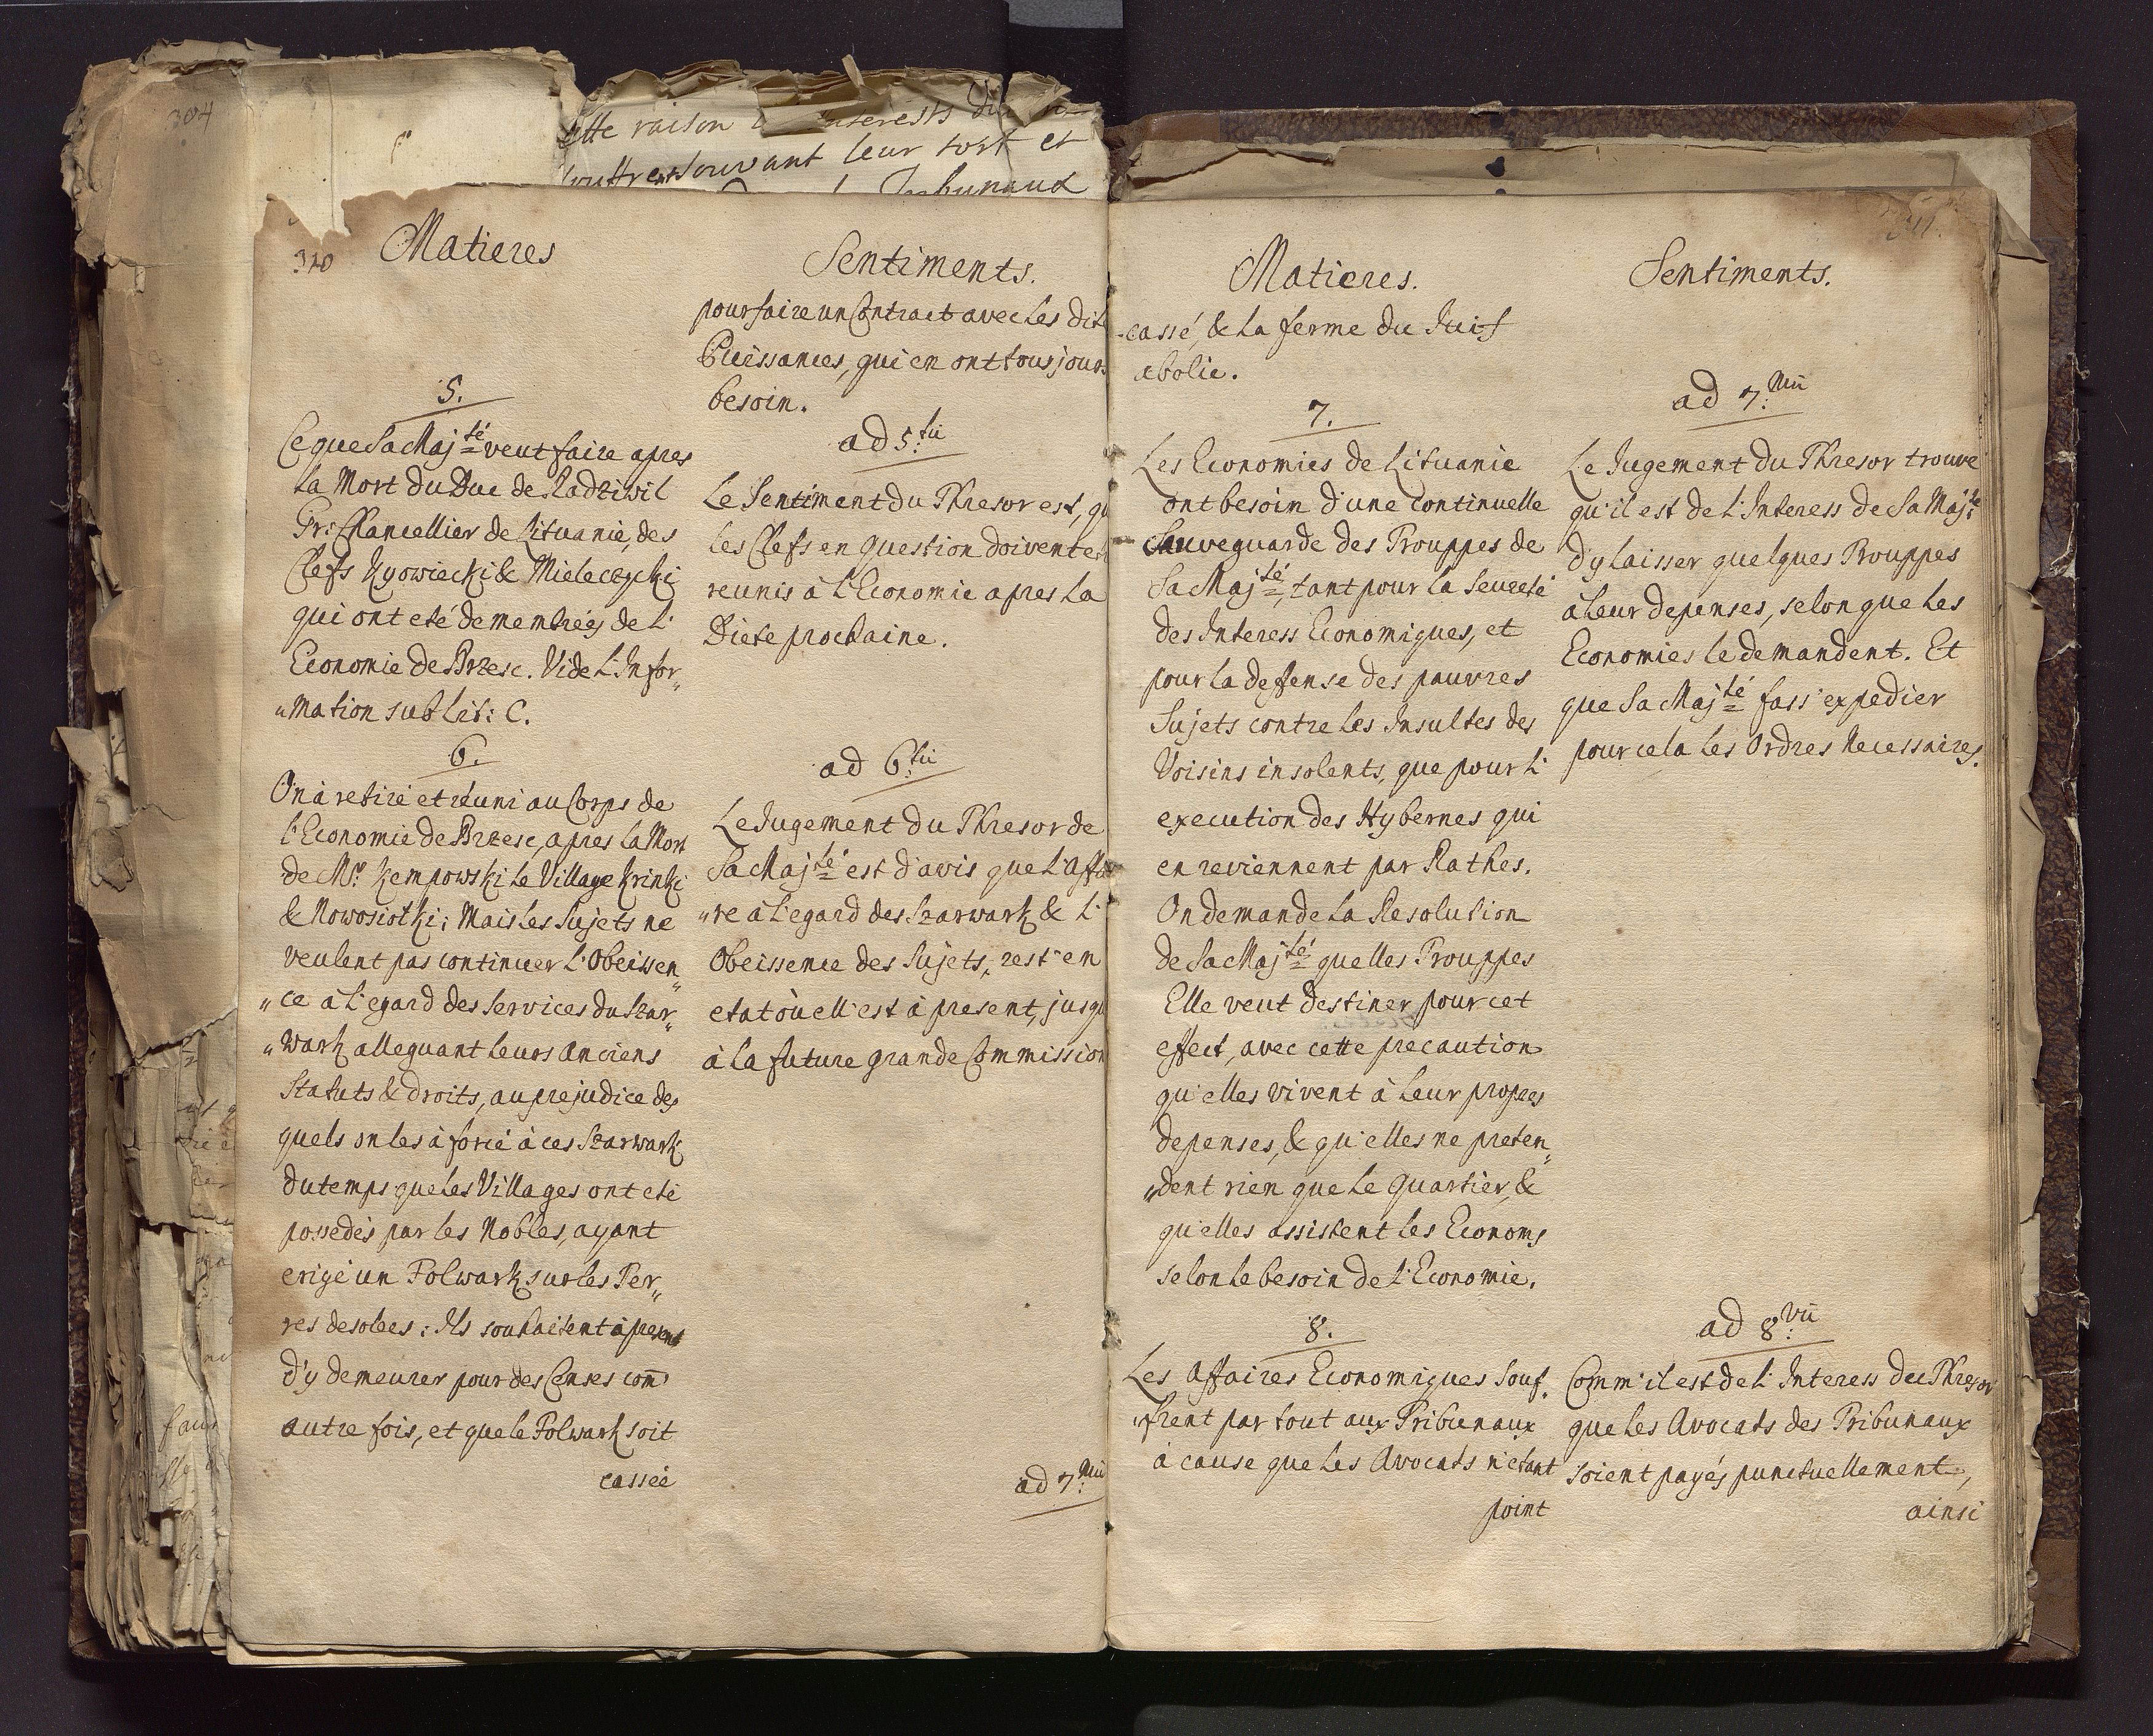 304
cette raison
leur tort et
310
Matieres
5.
Ce que Sa Maj:té veut faire apres
la Mort du Duc de Radziwil
Gr: Chancellier de Lituanie, des
Clefs Kyowiecki & Mieleczycki
qui ont eté demembrées de l'
Economie de Brzesc. Vide l'Infor„
„mation sub Lit: C.
6.
On à retiré et réuni au Corps de
l'Economie de Brzesc, apres la Mort
de Mr. Kempowski le Village Krinki
& Nowosiotki; Mais les Sujets ne
veulent pas continuer l'Obeissen„
„ce à l'egard des Services du Szar„
„wark alleguant leurs Anciens
Statuts & droits, au prejudice des
quels on les à forcé à ces Szarwark
du temps que les Villages ont eté
possedés par les Nobles, ayant
erigé un Folwark sur les Ter„
res desolées: Ils souhaitent à present
d'y demeurer pour des Censes com̄
autre fois, et que le Folwark soit
cassée
Sentiments.
pour faire un Contract avec les dit
Puissances, qui en ont tousjours
besoin.
ad 5:tũ
Le Sentiment du Thresor est, qu
les Clefs en question doivent et
reunis à l'Economie apres la
Diete prochaine.
ad 6:tũ
Le Jugement du Thresor de
Sa Maj:té est d'avis que l'Affai
„re à l'egard des Szarwark & l'
Obeissence des Sujets, rest'en
etat òu ell'est à present, jusqu
à la future grande Commission
ad 7:mũ
311.
Matieres.
cassé, & la ferme du Juif
abolie.
7.
Les Economies de Lituanie
ont besoin d'une continuelle
Sauveguarde des Trouppes de
Sa Maj:té, tant pour la Seureté
des Interess Economiques, et
pour la deffense des pauvres
Sujets contre les Insultes des
Voisins insolents, que pour l'
execution des Hybernes qui
en reviennent par Rathes.
On demande la Resolution
de Sa Maj:té quelles Trouppes
Elle veut destiner pour cet
effect, avec cette precaution
qu'elles vivent à leur propres
depenses, & qu'elles ne preten„
„dent rien que le Quartier, &
qu'elles assistent les Economs
selon le besoin de l'Economie.
8.
Les Affaires Economiques Souf„
„frent par tout aux Tribunaux
à cause que les Avocats n'etant
point
Sentiments.
ad 7:mũ
Le Jugement du Thresor trouve
qu'il est de l'Interess de Sa Maj:té
d'y laisser quelques Trouppes
à leur depenses, selon que les
Economies le demandent. Et
que Sa Maj:té fass'expedier
pour cela les Ordres Necessaires.
ad 8:vũ
Comm'il est de l'Interess du Thresor
que les Avocats des Tribunaux
soient payés punctuellement,
ainsi